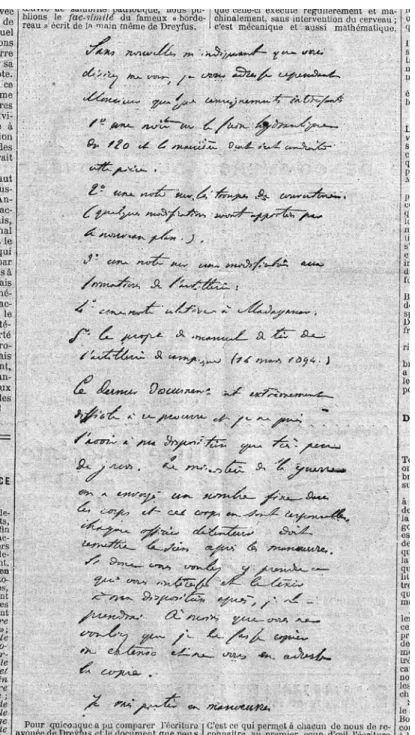 blions le fac-similé du fameux « borde-
reau » écrit de la main même de Dreyfus.
que celle-ci exécute régulièrement et ma-
chinalement, sans intervention du cerveau ;
c'est mécanique et aussi mathématique,
Sans nouvelles m'indiquant que vous
désirez me voir, je vous adresse cependant
Monsieur quelques renseignements intéressants
1º une note sur le frein hydraulique
du 120 et la manière dont s'est conduite
cette pièce.
2º une note sur les troupes de couverture.
(quelques modifications seront apportées par
le nouveau plan.)
3º une note sur une modification aux
formations de l'artillerie :
4º une note relative à Madagascar.
5º le projet de manuel de tir de
l'artillerie de campagne (14 mars 1894.)
Ce dernier document est extrêmement
difficile à se procurer et je ne puis
l'avoir à ma disposition que très peu
de jours. Le ministère de la guerre
en a envoyé un nombre fixe dans
les corps et ces corps en sont responsables,
chaque officier détenteur doit
remettre le sien après les manœuvres.
Si donc vous voulez y prendre ce
qui vous intéresse et le tenir
à ma disposition après, je le
prendrai. A moins que vous ne
vouliez que je le fasse copier
in extenso et ne vous en adresse
la copie.
Je vais partir en manœuvres
Pour quiconque a pu comparer l'écriture
avouée de Dreyfus et le document que nous
C'est ce qui permet à chacun de nous de re-
connaître au premier coup d'œil l'écriture